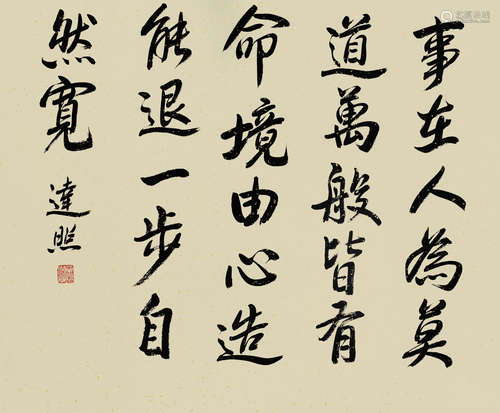 事在人為莫
道萬般皆有
命境由心造
能退一步自
然寬
達照